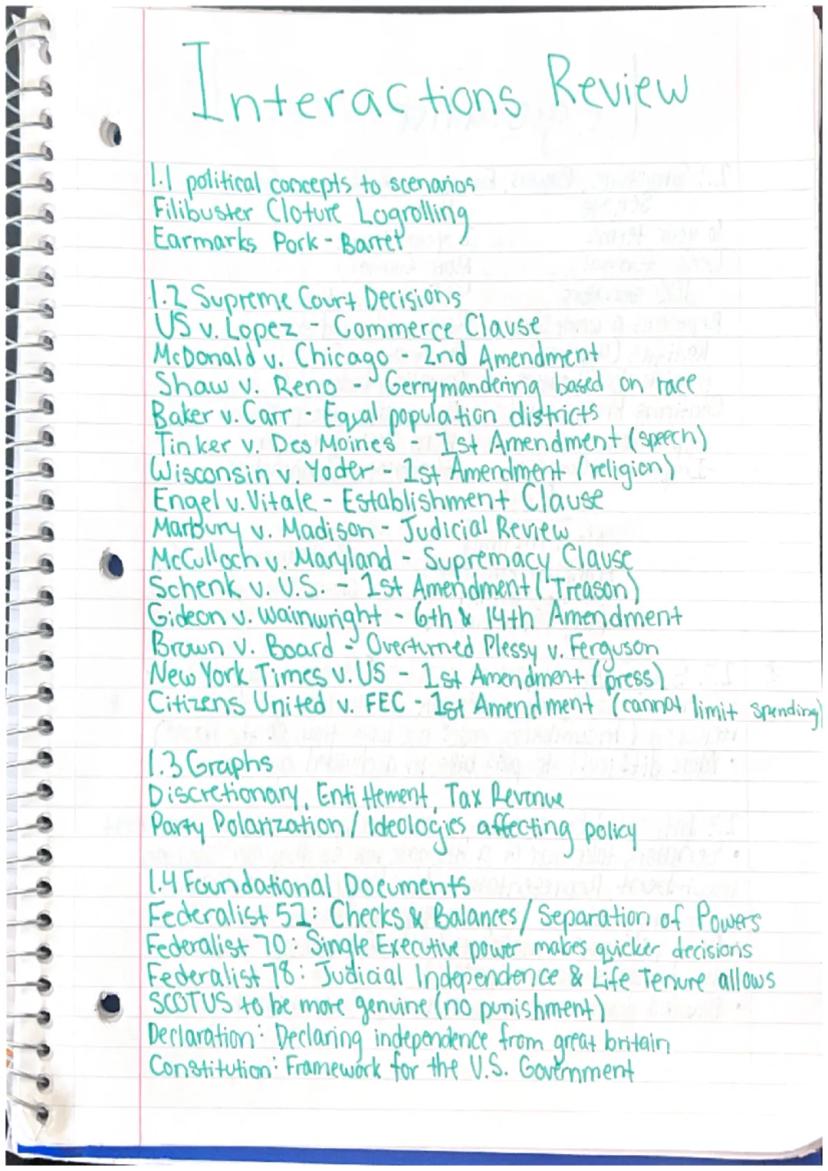 Interactions Review
1.1 political concepts to scenarios
Filibuster Cloture Logrolling
Earmarks Pork-Barrel
1.2 Supreme Court Decisions
US v. Lopez - Commerce Clause
McDonald v. Chicago - 2nd Amendment
Shaw v. Reno - Gerrymandering based on race
Baker v. Carr - Equal population districts
Tinker v. Des Moines - 1st Amendment (speech)
Wisconsin v. Yoder - 1st Amendment (religion)
Engel v. Vitale - Establishment Clause
Marbury v. Madison - Judicial Review
McCulloch v. Maryland - Supremacy Clause
Schenk v. U.S. - 1st Amendment (!Treason)
Gideon v. Wainwright - 6th & 14th Amendment
Brown v. Board - Overturned Plessy v. Ferguson
New York Times v. US - 1st Amendment (press)
Citizens United v. FEC - 1st Amendment (cannot limit spending)
1.3 Graphs
Discretionary, Entitlement, Tax Revenue
Party Polarization / Ideologies affecting policy
1.4 Foundational Documents
Federalist 51: Checks & Balances / Separation of Powers
Federalist 70: Single Executive power makes quicker decisions
Federalist 78: Judicial Independence & Life Tenure allows
SCOTUS to be more genuine (no punishment)
Declaration: Declaring independence from great britain
Constitution: Framework for the U.S. Government